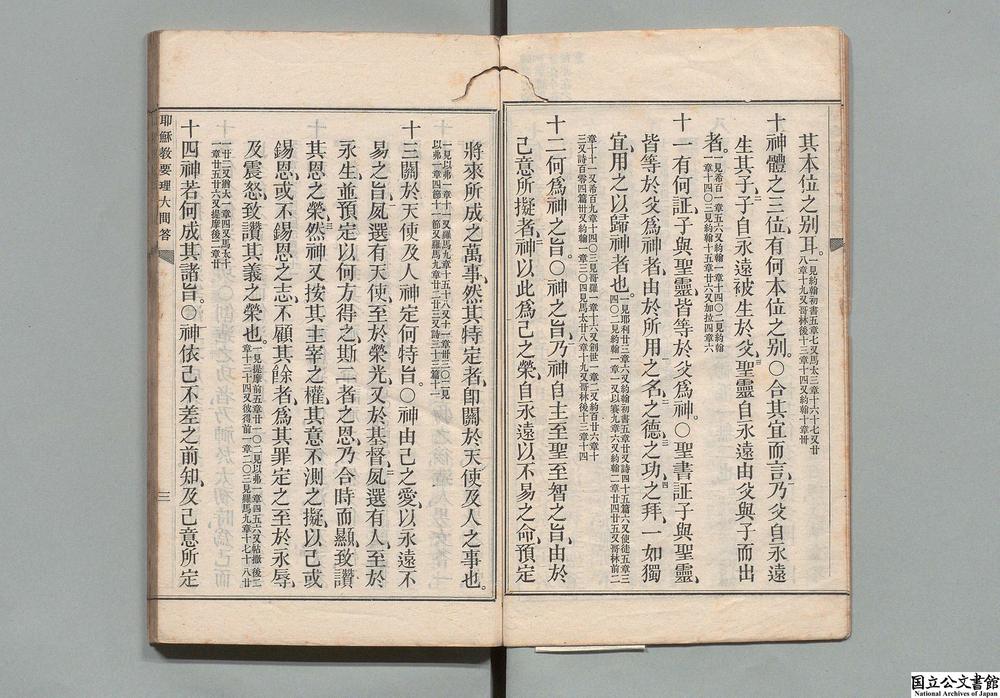 其本位之别耳。一見約翰初書五章七又馬太三章十六十七又廿
八章十九又哥林後十三章十四又約翰十章卅
十神體之三位有何本位之別。○合其宜而言乃父自永遠
生其子子自永遠被生於父聖靈自永遠由父與子而出
者。一見希百一章五六又約翰一章十四○二見約翰
一章十四○三見約翰十五章廿六又加拉四章六
十一有何証子與聖靈皆等於父爲神。○聖書証子與聖靈
皆等於父爲神者由於所用之名之德之功之拜一如獨
宜用之以歸神者也。
章十十一又希百九章十四○三見哥羅一章十六又創世一章二又約百廿六章十
三又詩百零四篇卅又約翰一章三○四見馬太廿八章十九又哥林後十三章十四
十二何爲神之旨。○神之旨乃神自主至聖至智之旨由於
己意所擬者神以此爲己之榮自永遠以不易之命預定
將來所成之萬事然其特定者卽關於天使及人之事也。
一見以弗一章十一又羅馬九章十五十八又十一章卅三○二見
以弗一章四節十一節又羅馬九章廿二廿三又詩三十三篇十一
十三關於天使及人神定何特旨。○神由己之愛以永遠不
易之旨夙選有天使至於榮光又於基督夙選有人至於
永生並預定以何方得之斯二者之恩乃合時而顯致讚
其恩之榮然神又按其主宰之權其意不測之擬以己或
錫恩或不錫恩之志不顧其餘者爲其罪定之至於永辱
及震怒致讚其義之榮也。
一廿二又猶大一章四又馬太十
一章廿五廿六又提摩後二章廿
十四神若何成其諸旨。○神依己不差之前知及己意所定
耶穌教要理大問答
三
国立公文書館
National Archives of Japan